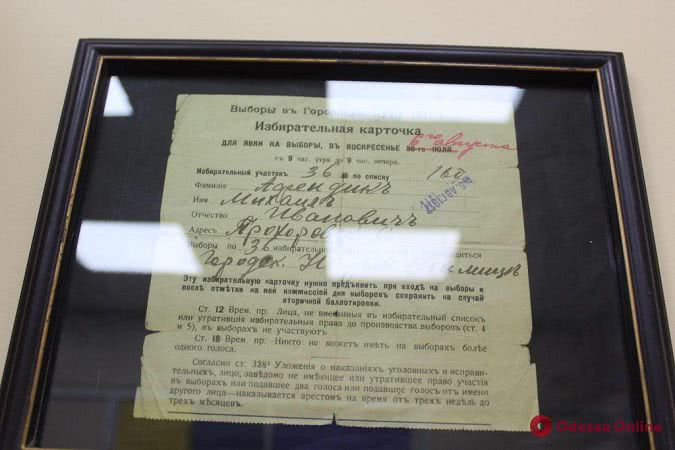 Выборы въ Горо
Избирательная карточка
6го августа
ДЛЯ ЯВКИ НА ВЫБОРЫ, ВЪ ВОСКРЕСЕНЬЕ 30-го ІЮЛЯ
съ 9 час. утра до 9 час. вечера.
Избирательный участок 36 № по списку 160
Фамилія Афендикъ
Имя Михаилъ
Отчество Ивановичъ
Адресъ Прохоров
Выборы по 36 избирательно дится
Городск.
Эту избирательную карточку нужно предъявить при входѣ на выборы и
послѣ отмѣтки на ней коммиссіей дня выборовъ сохранить на случай
вторичной баллотировки.
Ст. 12 Врем. пр. Лица, не внесенныя въ избирательный списокъ
или утратившія избирательныя права до производства выборовъ (ст. 4
и 5), въ выборахъ не участвуютъ.
Ст. 18 Врем. пр. Никто не можетъ имѣть на выборахъ болѣе
одного голоса.
Согласно ст. 328⁵ Уложенія о наказаніяхъ уголовныхъ и исправи-
тельныхъ, лицо, завѣдомо не имѣющее или утратившее право участія
въ выборахъ или подавшее два голоса или подавшее голосъ отъ имени
другого лица—наказывается арестомъ отъ трехъ недѣль до
трехъ мѣсяцевъ.
Odessa Online